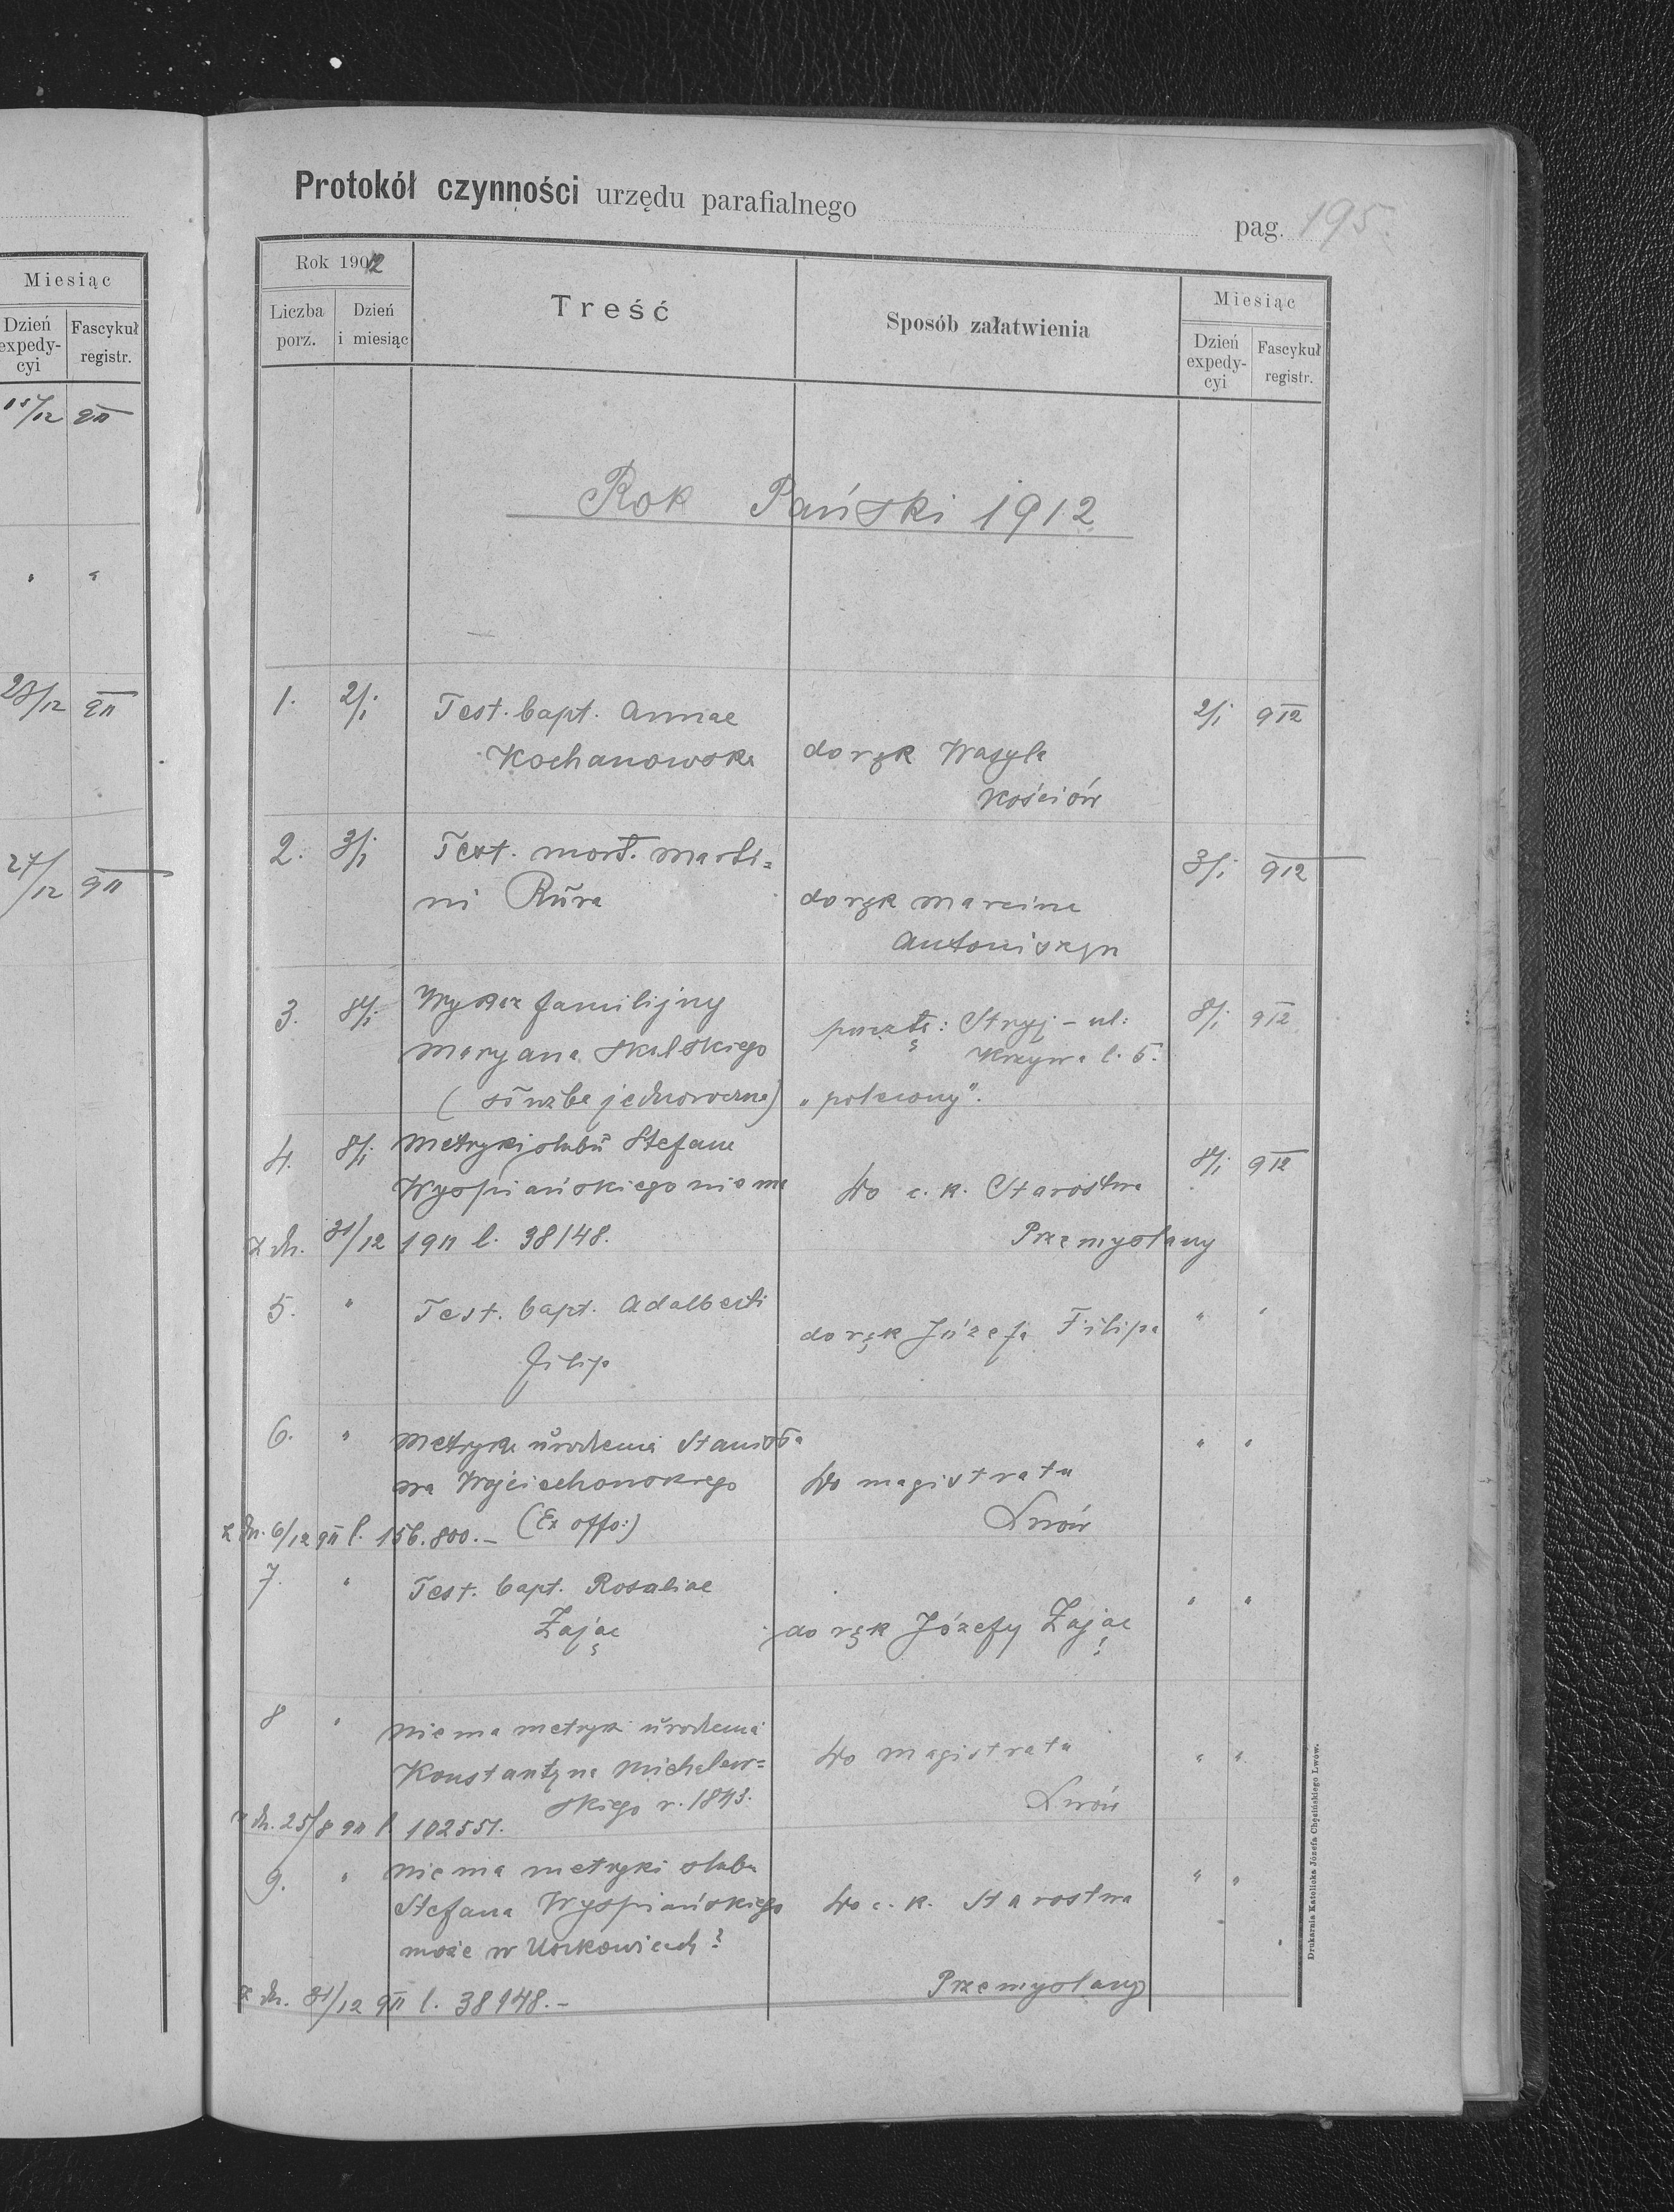 Miesiąc
Dzień expedy-cyi
Fascykuł registr.
15/12 911
" "
23/12 911
27/12 911
Protokół czynności urzędu parafialnego
pag. 195.
Rok 1912
Liczba porz.
Dzień i miesiąc
Treść
Sposób załatwienia
Miesiąc
Dzień expedy-cyi
Fascykuł registr.
Rok Pański 1912
1. 2/1 Test. bapt. Annae 2/1 912
Kochanowska do ręk Wasyla
Kościów
2. 3/1 Test. mort. Marti= 3/1 912
ni Rŭra do ręk Marcina
Antoniszyn
3. 8/1 Wykaz familijny 8/1 912
Maryana Skalskiego pocztą: Stryj - ul:
Krzywa l. 5.
(słŭżba jednoroczna) "polecony".
4. 8/1 Metryki ślubŭ Stefana 8/1 912
Wyspiańskiego niema Do c. k. Starostwa
z dn. 31/12 1911 l. 38148. Przemyślany
5. " Test. bapt. Adalberti " "
Filip do ręk Józefa Filipa
6. " Metryka ŭrodzenia Stanisła " "
wa Wojciechowskiego Do magistratu
Lwów
z dn. 6/12 911 l. 156.800.- (Ex offo:)
7. " Test. bapt. Rosaliae " "
Zając do ręk Józefy Zając
8 " Niema metryki ŭrodzenia " "
Konstantyna Michalew= Do Magistratu
skiego r. Lwów
z dn. 25/8 911 l. 102551.
9. " Niema metryki ślubu " "
Stefana Wyspiańskiego Do c. k. Starostwa
może w ?
Przemyślany
z dn. 31/12 911 l. 38148.-
Drukarnia Katolicka Józefa Chęcińskiego Lwów.